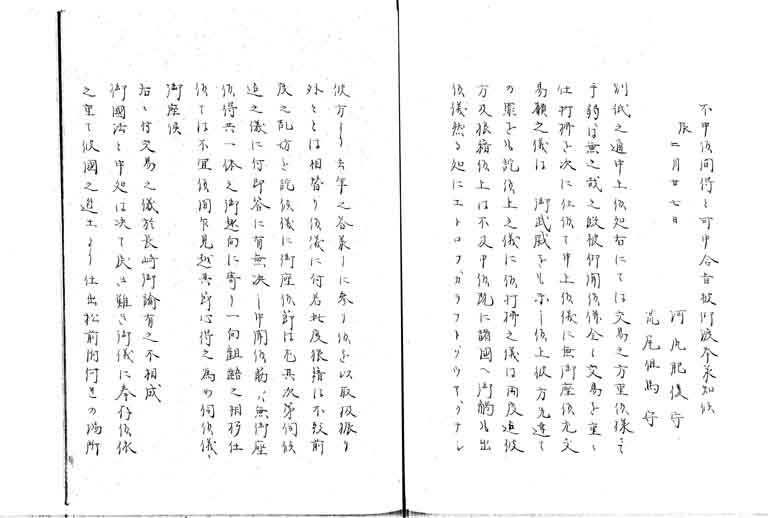 不申候間得と可申合旨被仰渡奉承知候
辰二月廿七日
河尻肥後守
荒尾但馬守
別紙之通申上候処右にては交易之方重候様ニて
手弱は無之哉之段被仰聞候併全く交易を重く
仕打拂を次に仕候て申上候儀に無御座候尤交
易願之儀は 御武威をも示し候上彼方先達て
の罪をも詫候上之儀に候打拂之儀は両度迄彼
方及狼藉候上は不及申候既に諸國へ御觸も出
候儀然る処にエトロフカラフト
彼方より去年之答義しに参り候を以取扱振り
外ととは相替り候儀に付若此度狼藉は不致前
度之乱妨を詫候儀に御座候節は尤其次第伺候
迄之儀に付即答に有無決し申聞候筋ハ無御座
候得共一体之御趣向に寄り一向齟齬之相移仕
候ては不宜候間乍見越其節心得之為め伺候儀ニ
御座候
右ニ付交易之儀於長崎御諭有之不相成
御國法と申処は決て民き難き御儀に奉存候依
之重て彼國之進止より仕出松前内何き之場所